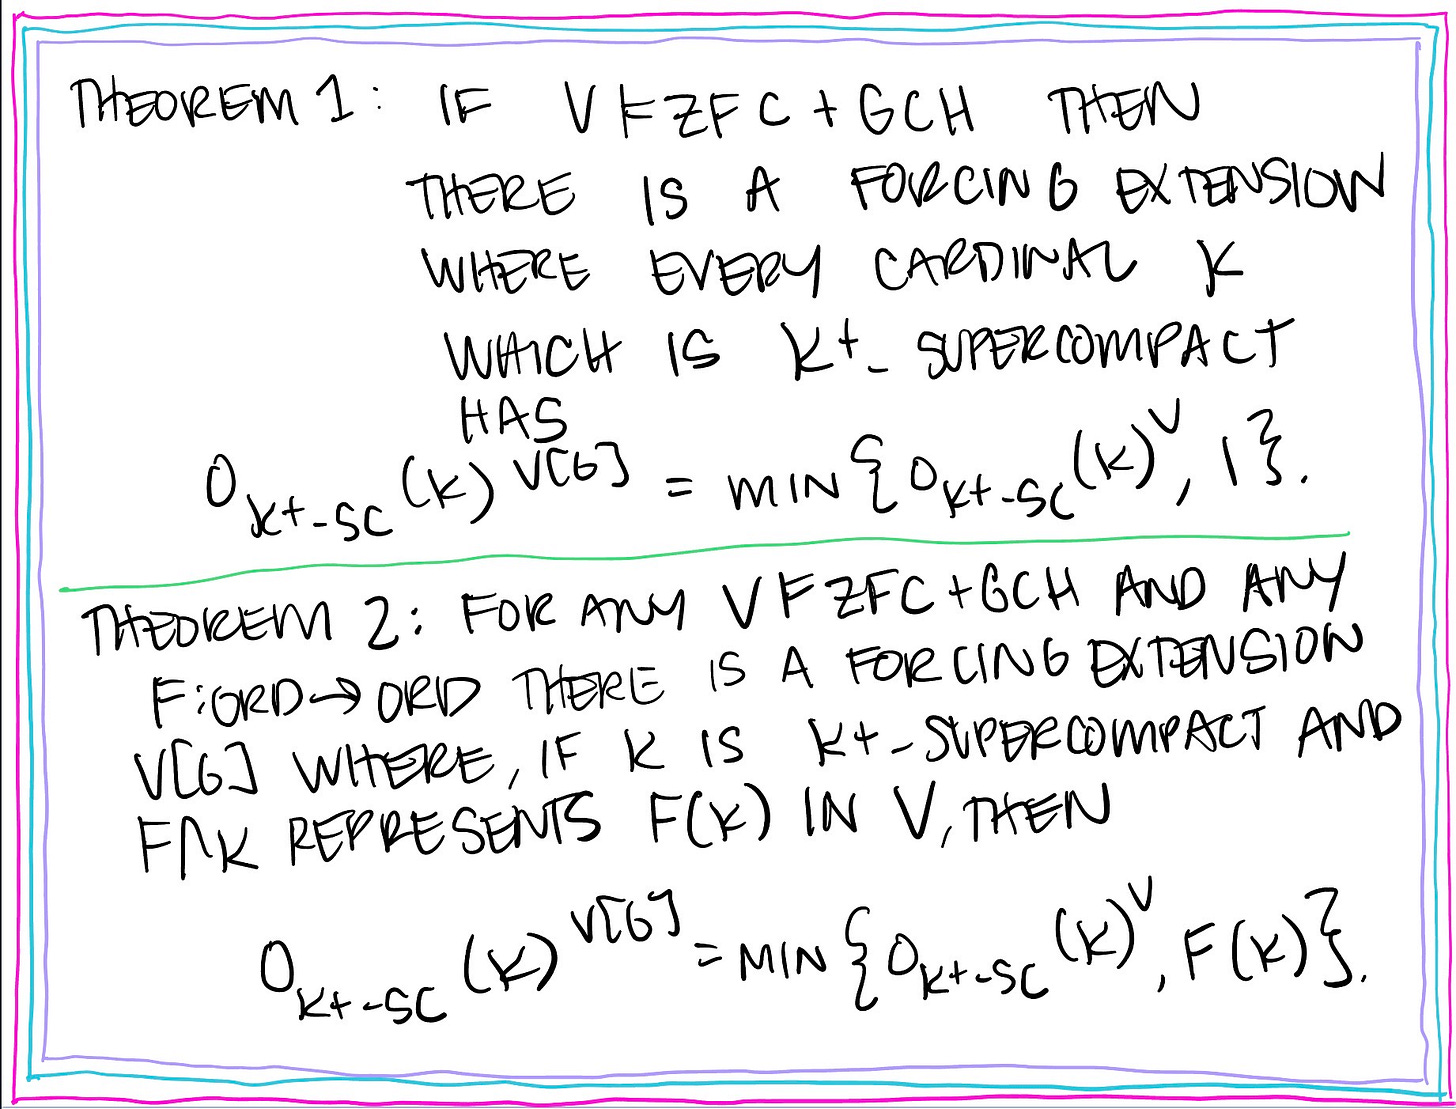 THEOREM 1: IF V ⊨ ZFC + GCH THEN
THERE IS A FORCING EXTENSION
WHERE EVERY CARDINAL K
WHICH IS K+-SUPERCOMPACT
HAS
O_{K+-SC}(K)^{V[G]} = MIN {O_{K+-SC}(K)^V, 1}.
THEOREM 2: FOR ANY V ⊨ ZFC + GCH AND ANY
F: ORD → ORD THERE IS A FORCING EXTENSION
V[G] WHERE, IF K IS K+-SUPERCOMPACT AND
F↾K REPRESENTS F(K) IN V, THEN
O_{K+-SC}(K)^{V[G]} = MIN {O_{K+-SC}(K)^V, F(K)}.